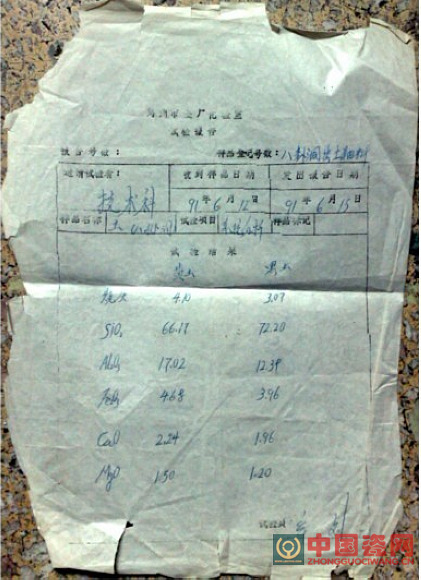 厂化验室
试验报告
报告号数： 样品登记号数：八卦洞出土
送请试验者： 收到样品日期 发出报告日期
技术科 91年6月12日 91年6月15日
样品名称 土 试验项目 样品标记
试验结果
黄土 黑土
烧失 4.10 3.09
SiO₂ 66.17 72.20
Al₂O₃ 17.02 12.39
Fe₂O₃ 4.68 3.96
CaO 2.24 1.96
MgO 1.50 1.20
试验员
中国瓷网
ZHONGGUOCIWANG.CN